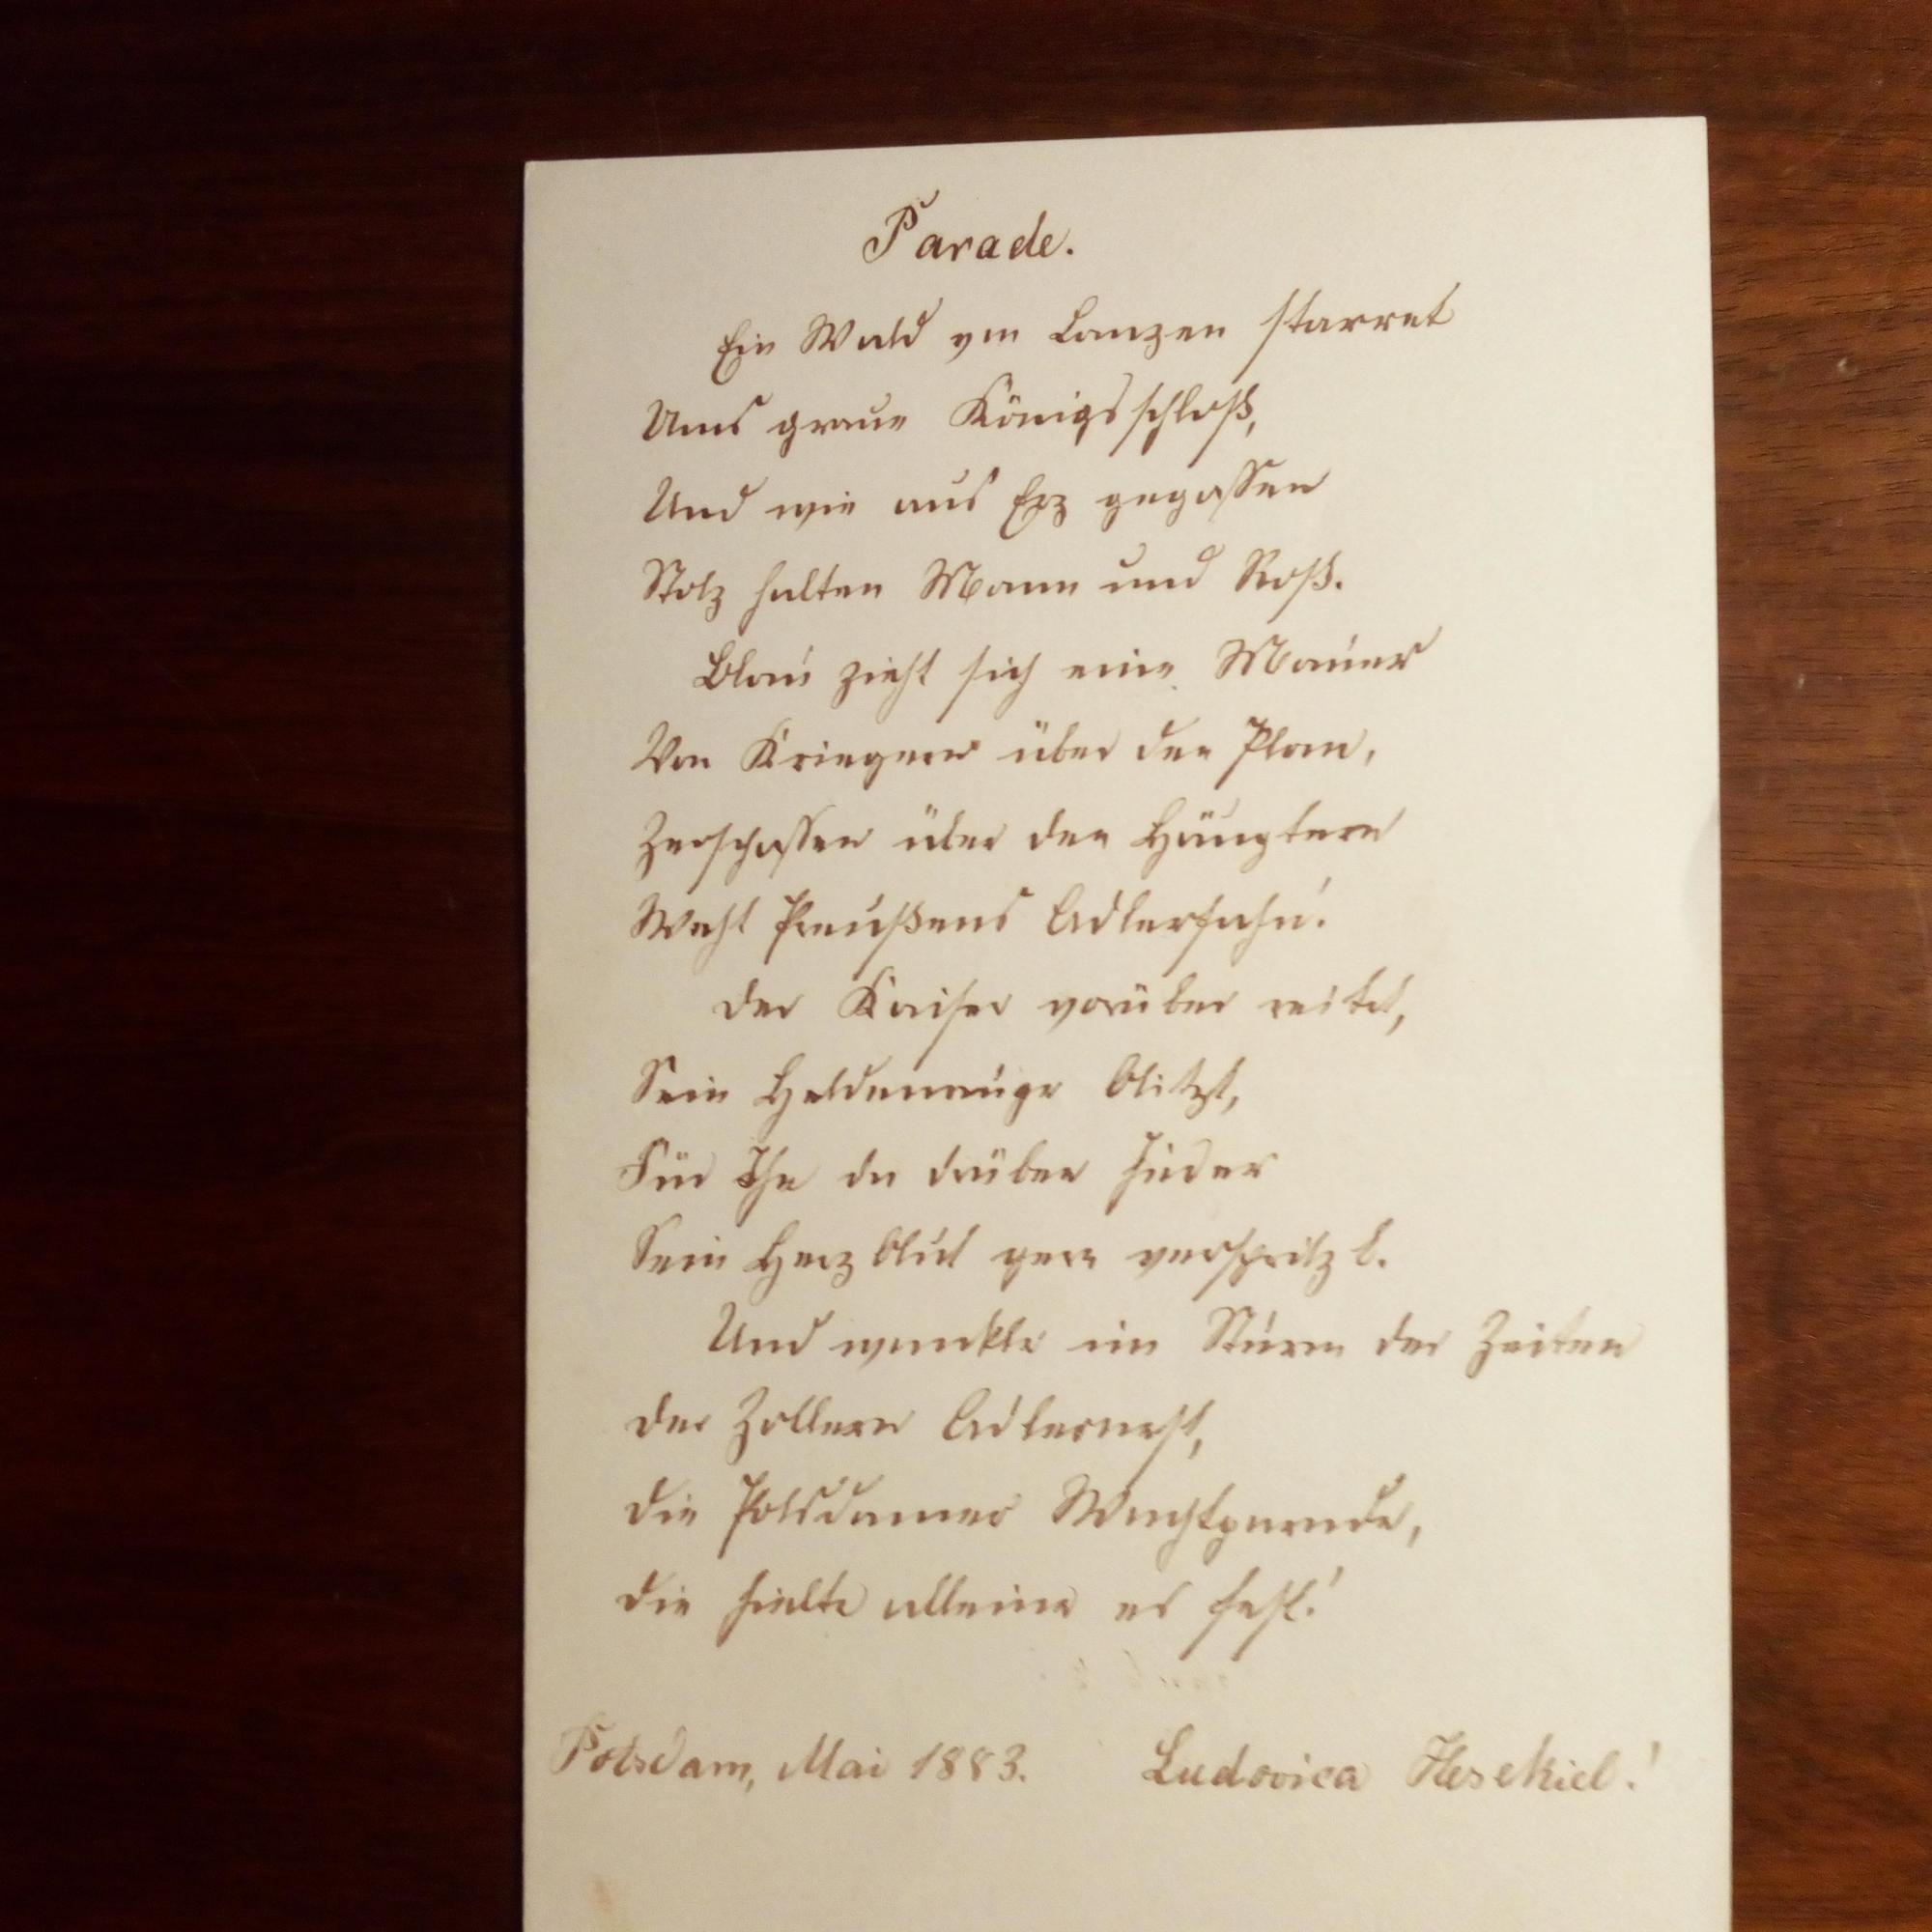 Parade.
Ein Wald von Lanzen starret
Ums graue Königsschloß,
Und wie aus Erz gegossen
Stolz halten Mann und Roß.
Blau zieht sich eine Mauer
Von Kriegern über den Plan,
Zerschossen über den Häuptern
Weht Preußens Adlerfahn'.
Der Kaiser vorüber reitet,
Sein Heldenauge blitzt,
Für Ihn da drüben Jeder
Sein Herzblut gern verspritzt.
Und wankte im Sturm der Zeiten
Der Zollern Adlernest,
Die Potsdamer Wachtparade,
Die hielte alleine es fest!
Potsdam, Mai 1883. Ludovica Hesekiel.